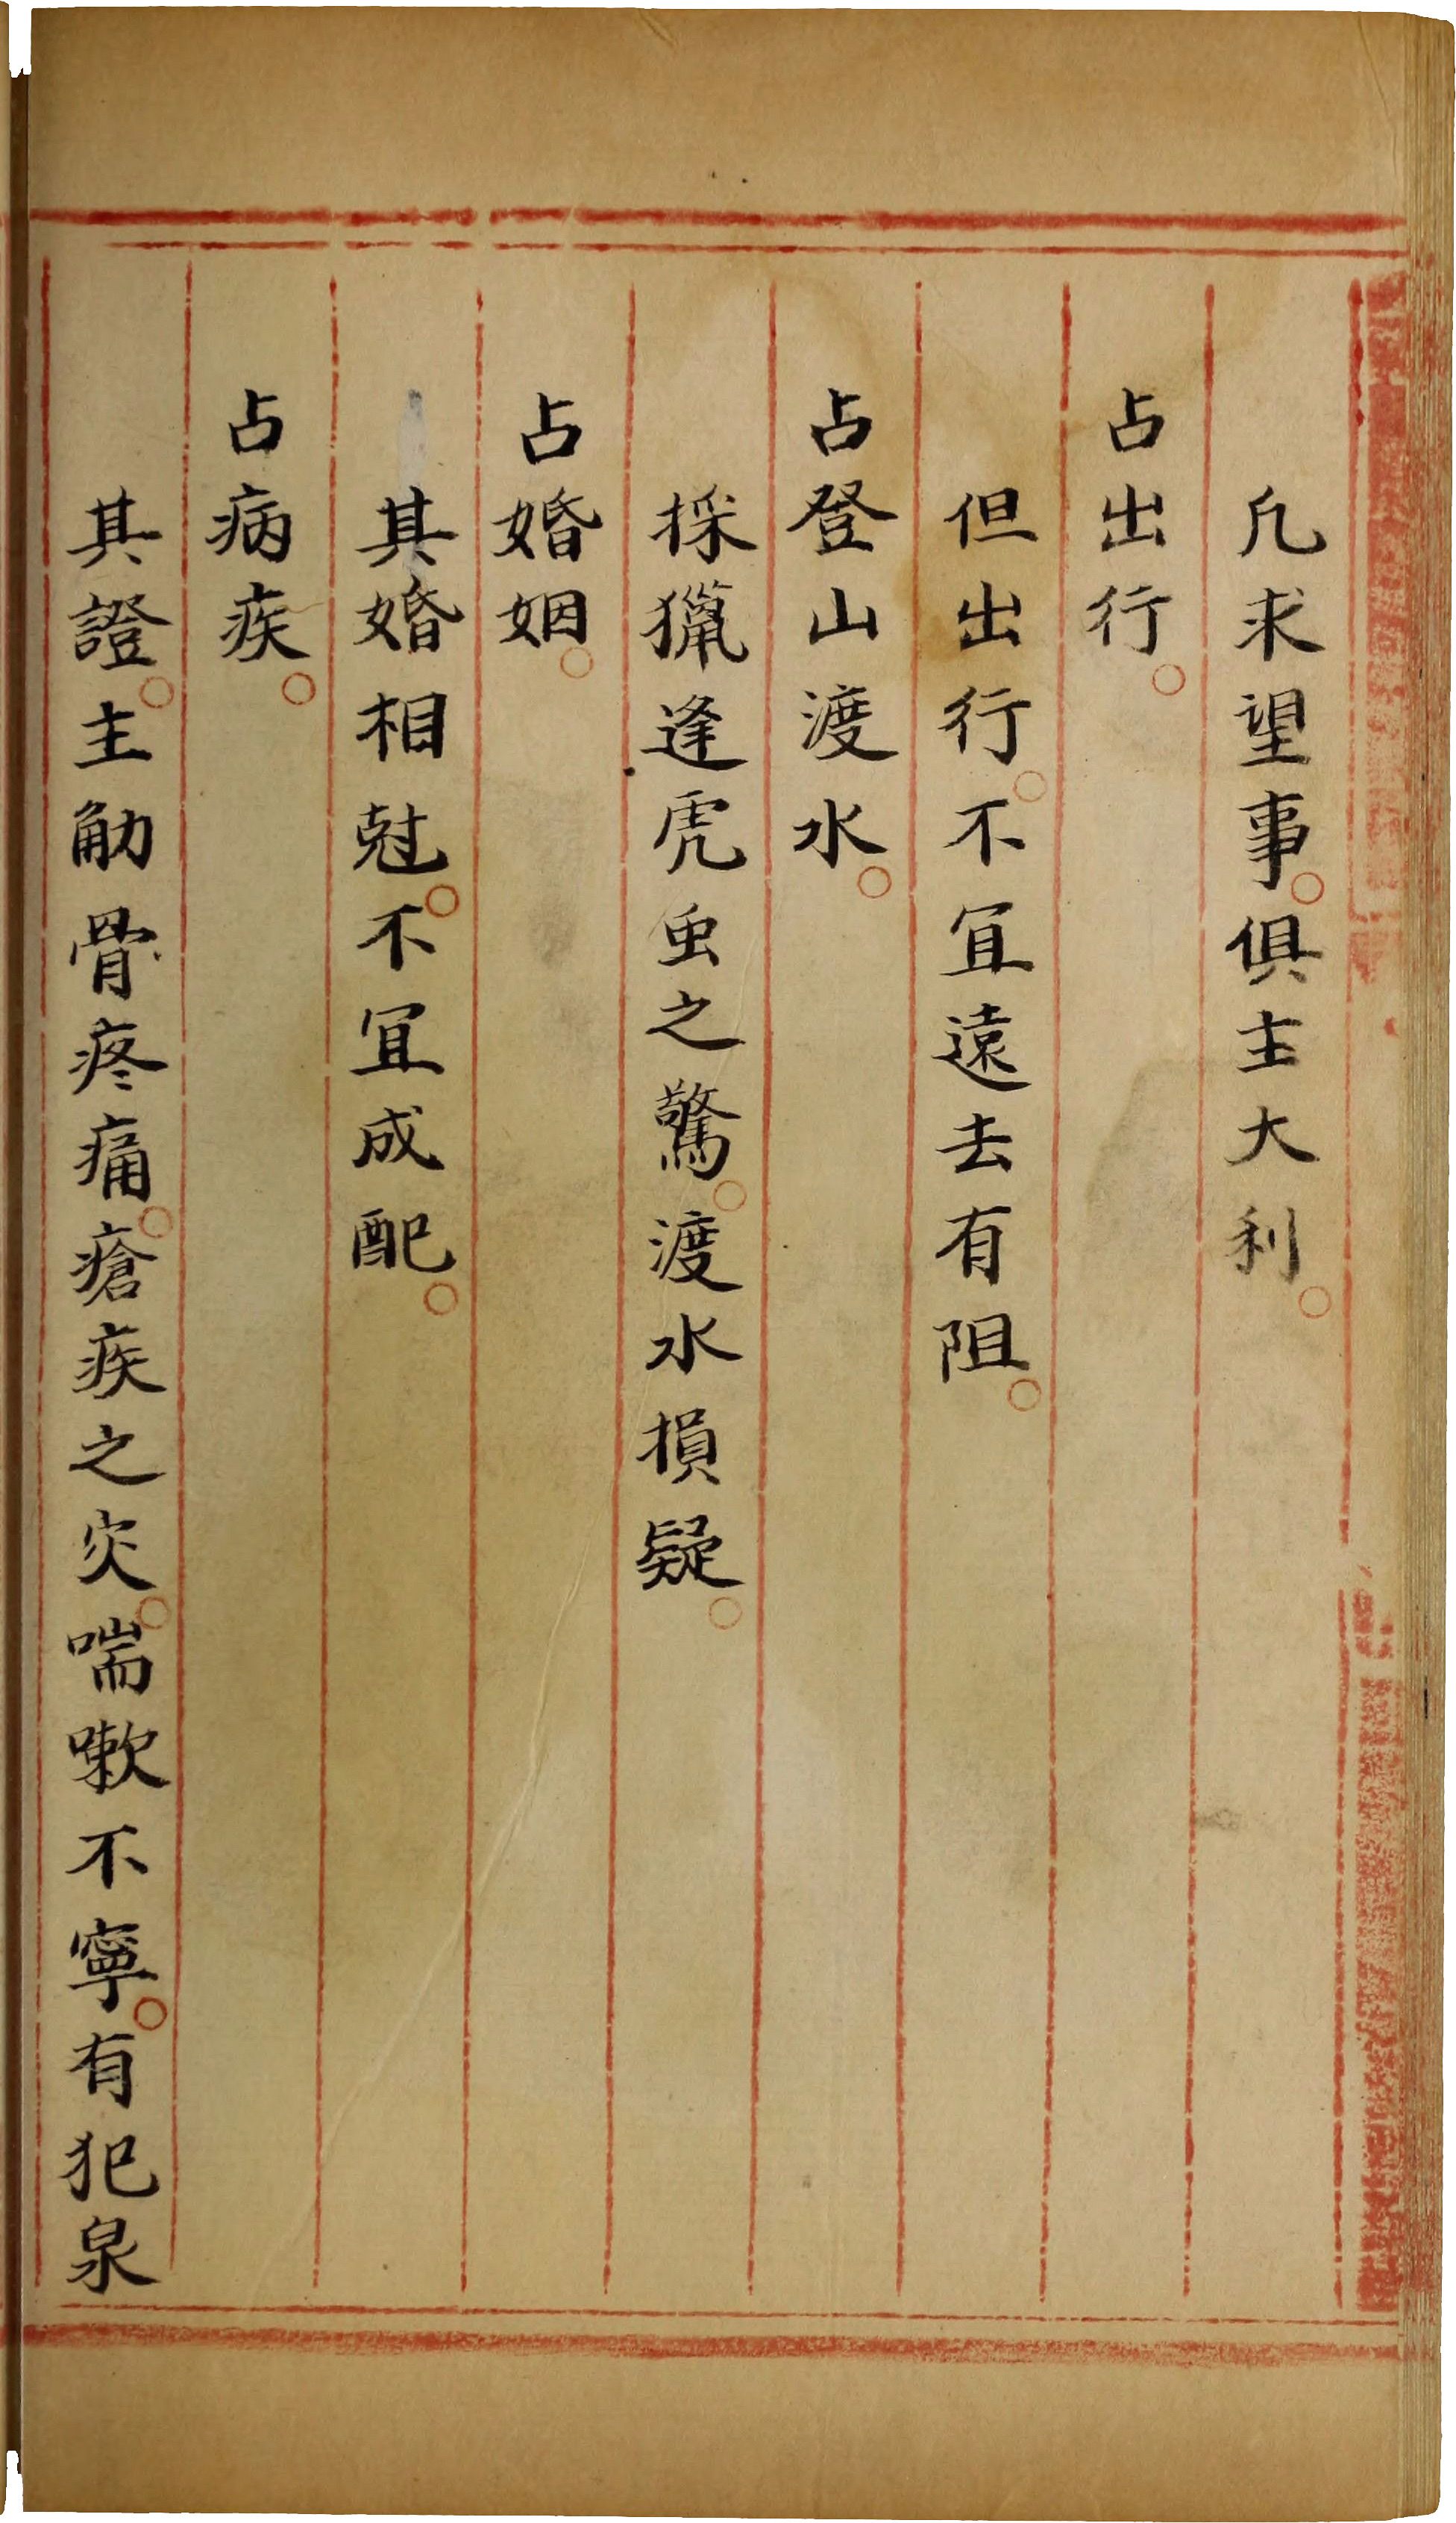 凢求望事。俱主大利。
占出行。
但出行。不冝遠去有阻。
占登山渡水。
採獵逢虎虫之驚。渡水損疑。
占婚姻。
其婚相尅。不冝成配。
占病疾。
其證。主觔骨疼痛。瘡疾之灾。喘嗽不寧。有犯泉